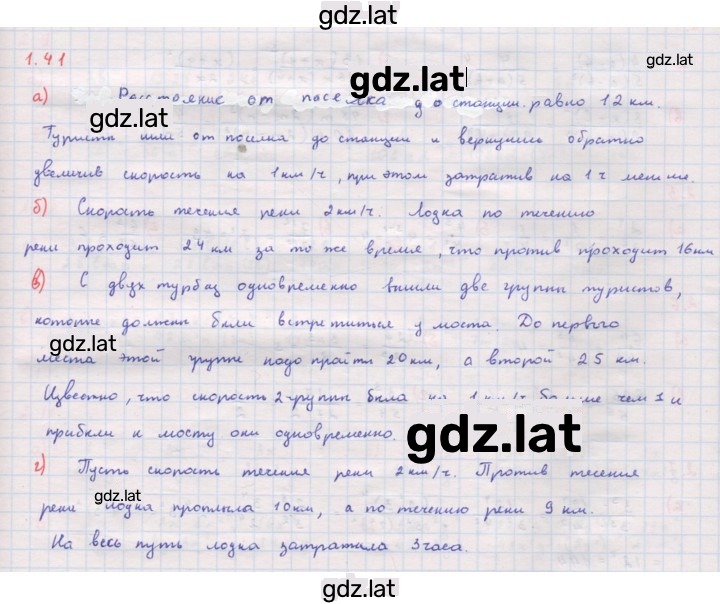 gdz.lat
1.41
gdz.lat
а) Расстояние от поселка до станции равно 12 км.
gdz.lat
gdz.lat
Туристы шли от поселка до станции и вернулись обратно
увеличив скорость на 1 км/ч, при этом затратив на 1 ч меньше.
б) Скорость течения реки 2 км/ч. Лодка по течению
реки проходит 24 км за то же время, что против проходит 16 км
в) С двух турбаз одновременно вышли две группы туристов,
которые должны были встретиться у моста. До первого
gdz.lat
моста этой группе надо пройти 20 км, а второй 25 км.
Известно, что скорость 2 группы была на 1 км/ч больше чем 1 и
прибыли к мосту они одновременно.
gdz.lat
г) Пусть скорость течения реки 2 км/ч. Против течения
gdz.lat
реки лодка проплыла 10 км, а по течению реки 9 км.
На весь путь лодка затратила 3 часа.
gdz.lat